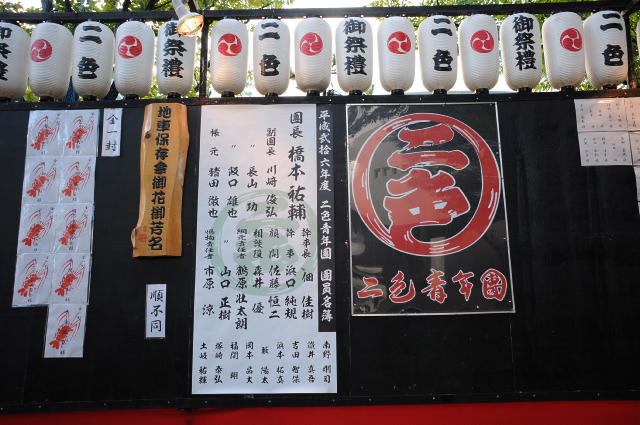 御祭禮
二色
御祭禮
二色
御祭禮
二色
御祭禮
二色
金一封
地車保存会御花御芳名
順不同
平成弐拾六年度 二色青年團 團員名簿
團長 橋本祐輔
副團長 川﨑俊弘
〃 長山功
〃 阪口雄也
帳元 猪田徹也
幹事長 佃佳樹
幹事 浜口純規
顧問 佐藤恒二
相談役 森井優
綱元責任者 鶴原壮太朗
〃 山口正樹
鳴物責任者 市原涼
南野剛司
濵井真吾
吉田智保
浜本拓真
藪陽太
岡本昌大
福間翔
塚崎泰弘
土岐祐輝
二色
二色青年團